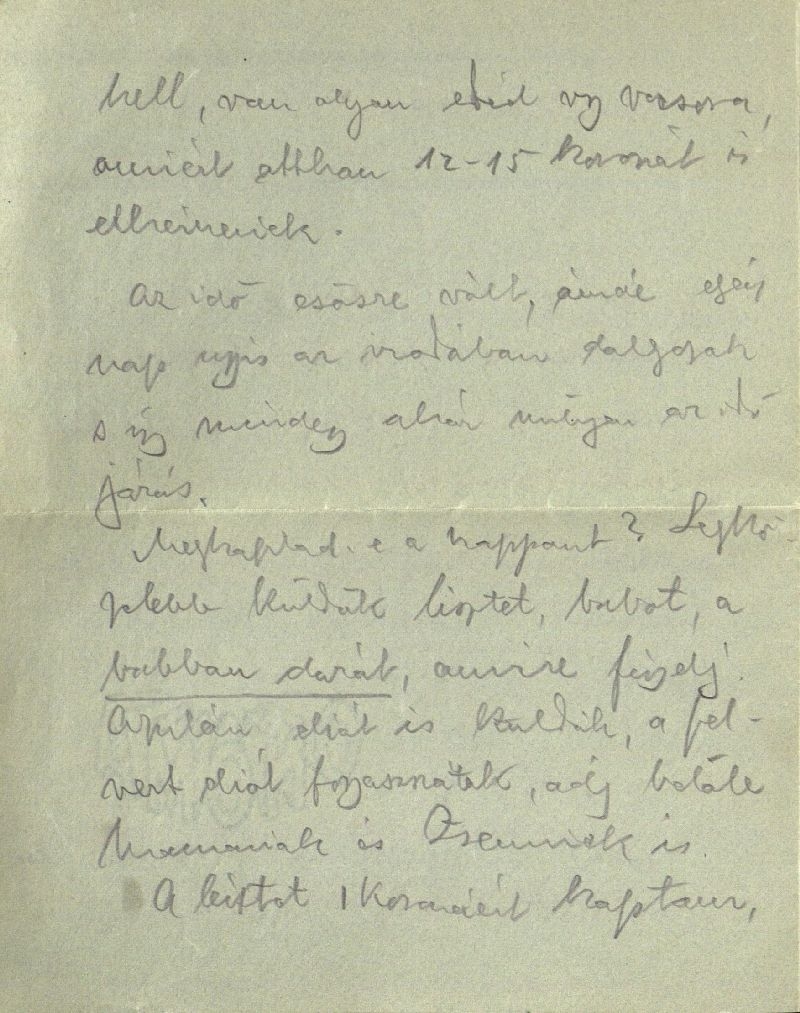 kell, van olyan ebéd vgy vacsora,
amiért otthan 12-15 koronát is
elkérnének.
Az idő esősre vált, ámde egész
nap ugyis az irodában dolgozok
s így mindegy akár milyen az idő
járás.
Megkaptad-e a szappant? Legkö-
zelebb küldök lisztet, babot, a
babban darát, amire figyelj.
Azután diót is küldök, a fel-
vert diót fogyasszátok, adj belőle
mamának és is.
A lisztet 1 koronáért kaptam,